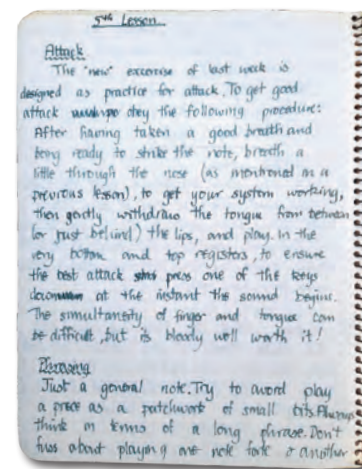 5th Lesson
Attack
The "new" excercise of last week is
designed as practice for attack. To get good
attack obey the following procedure:
After having taken a good breath and
being ready to strike the note, breath a
little through the nose (as mentioned in a
previous lesson), to get your system working,
then gently withdraw the tongue from between
(or just behind) the lips, and play. In the
very bottom and top registers, to ensure
the best attack press one of the keys
down at the instant the sound begins.
The simultaneity of finger and tongue can
be difficult, but is bloody well worth it!
Phrasing
Just a general note. Try to avoid play
a piece as a patchwork of small bits. Always
think in terms of a long phrase. Don't
fuss about playing one note forte & another